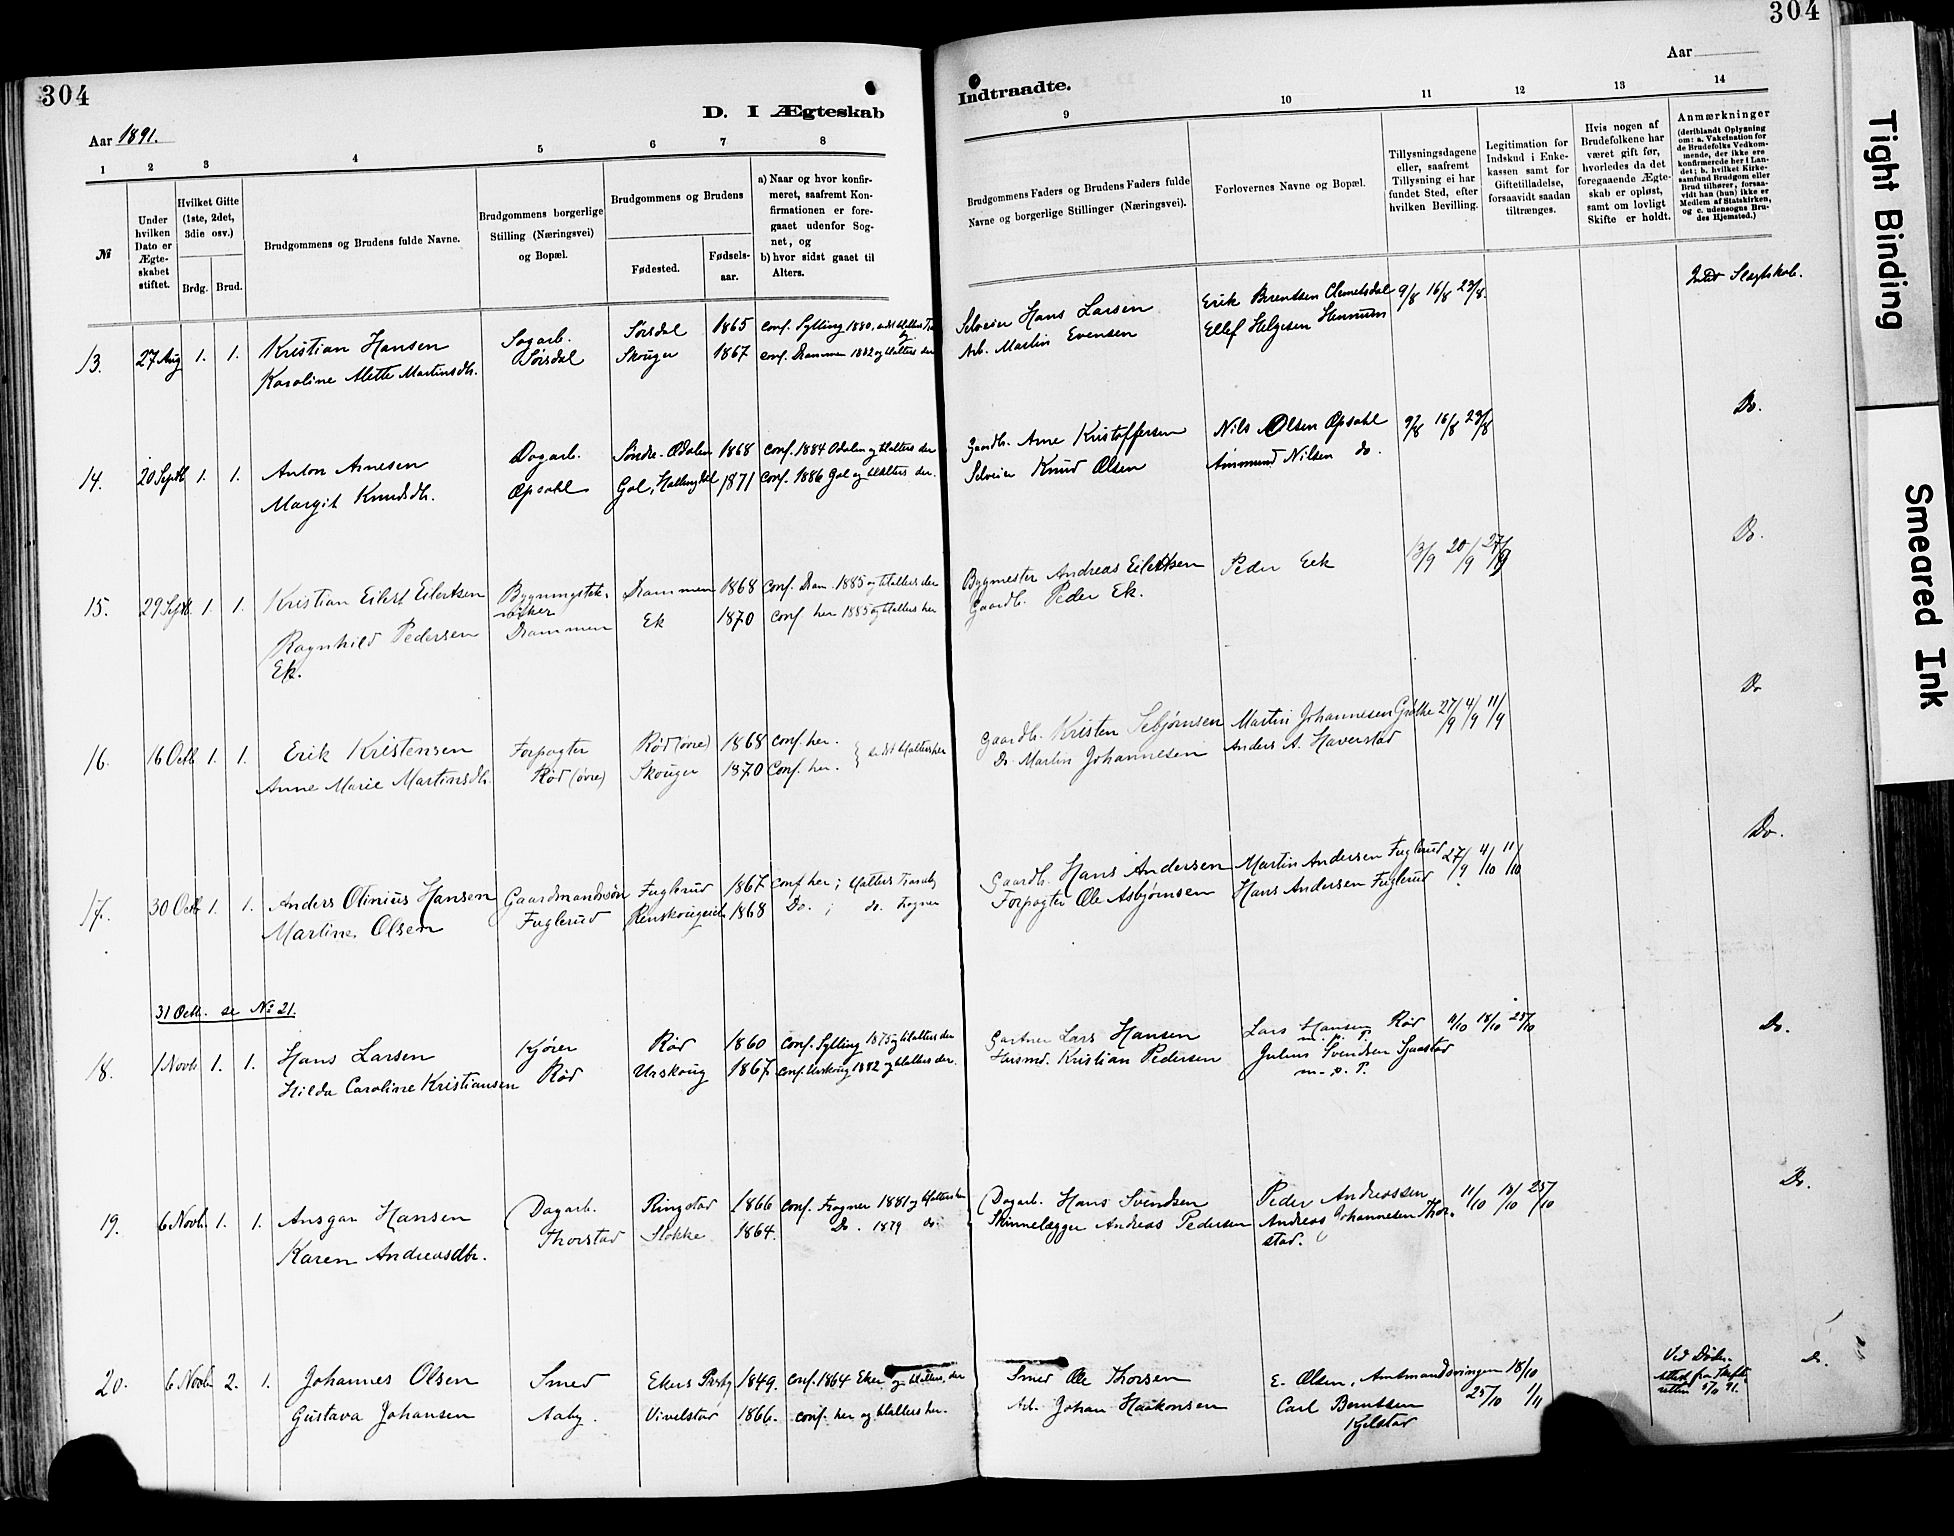 304
Aar 1891.
D. I Ægteskab
1 2 3 4 5 6 7 8
№
Under hvilken Dato er Ægteskabet stiftet.
Hvilket Gifte (1ste, 2det, 3die osv.)
Brdg. Brud.
Brudgommens og Brudens fulde Navne.
Brudgommens borgerlige Stilling (Næringsvei) og Bopæl.
Brudgommens og Brudens
Fødested. Fødselsaar.
a) Naar og hvor konfirmeret, saafremt Konfirmationen er foregaaet udenfor Sognet, og
b) hvor sidst gaaet til Alters.
13. 27 Aug 1. 1. Kristian Hansen Sagarb. Sørsdal 1865 conf. Sylling 1880,
Karoline Alette Martinsdtr. Sørsdal Skouger 1867 conf. Drammen 1882 og tilalters der
14. 20 Septb 1. 1. Anton Arnesen Dagarb. Søndre-Odalen 1868 conf. 1884 Odalen og tilalters der
Margit Knudsdtr. Opsahl Gol, Hallingdal 1871 conf. 1886 Gol og tilalters der.
15. 29 Septb 1. 1. Kristian Eilert Eilertsen Bygningstek- Drammen 1868 conf. Dram. 1885 og tilalters der
Ragnhild Pedersen niker Drammen Ek 1870 conf. her 1885 og tilalters her
Ek.
16. 16 Octb 1. 1. Erik Kristensen Forpagter Rød (øvre) 1868 conf. her. } sidst tilalters her
Anne Marie Martinsdtr. Rød (øvre) Skouger 1870 conf. her.
17. 30 Octb 1. 1. Anders Olinius Hansen Gaardmandssøn Fuglerud 1867 conf. her; tilalters Tranby
Martine Olsen Fuglerud Renskougeie 1868 Do. ; do. Frogner
31 Octb. se № 21.
18. 1 Novb 1. 1. Hans Larsen Kjører Rød 1860 conf. Sylling 1875 og tilalters der
Hilda Caroline Kristiansen Rød Urskoug 1867 conf. Urskoug 1882 og tilalters der.
19. 6 Novb. 1. 1. Ansgar Hansen Dagarb. Ringstad 1866 conf. Frogner 1881 og tilalters her
Karen Andreasdtr. Thorstad Stokke 1864. Do. 1879 do.
20. 6 Novb 2. 1. Johannes Olsen Smed Ekers Præstg. 1849. conf. 1864 Eker og tilalters der
Gustava Johansen Aaby. Vivelstad 1866. conf. her og tilalters her.
304
Aar
Indtraadte.
9 10 11 12 13 14
Brudgommens Faders og Brudens Faders fulde Navne og borgerlige Stillinger (Næringsvei).
Forlovernes Navne og Bopæl.
Tillysningsdagene eller, saafremt Tillysning ei har fundet Sted, efter hvilken Bevilling.
Legitimation for Indskud i Enkekassen samt for Giftetilladelse, forsaavidt saadan tiltrænges.
Hvis nogen af Brudefolkene har været gift før, hvorledes da det foregaaende Ægteskab er opløst, samt om lovligt Skifte er holdt.
Anmærkninger
(deriblandt Oplysning om: a. Vakcination for de Brudefolks Vedkommende, der ikke ere konfirmerede her i Landet; b. hvilket Kirkesamfund Brudgom eller Brud tilhører, forsaavidt han (hun) ikke er Medlem af Statskirken, og c. udensogns Brudes Hjemsted.)
Selveier Hans Larsen Erik Berentsen Clemetsdal 9/8 16/8 23/8. Intet Slegtskab.
Arb. Martin Evensen Ellef Helgesen Hennum
Gaardb. Arne Kristoffersen Nils Olsen Opsahl 9/8 16/8 23/8 Do.
Selveier Knud Olsen Ammund Nilsen do.
Bygmester Andreas Eilertsen Peder Eek 13/9 20/9 27/9 Do.
Gaardb. Peder Ek.
Gaardb. Kristen Sebjørnsen Martin Johannesen Grøtte 27/9 4/9 11/9 Do
Do. Martin Johannesen Anders A. Haverstad
Gaardb. Hans Andersen Martin Andersen Fuglerud 27/9 4/10 11/10 Do.
Forpagter Ole Asbjørnsen Hans Andersen Fuglerud
Gartner Lars Hansen Lars Hansen Rød 11/10 18/10 25/10 Do.
m. p. P.
Husmd. Kristian Pedersen Julius Svendsen Sjaastad
m. p. P.
Dagarb. Hans Svendsen Peder Andreassen 11/10 18/10 25/10 Do.
Skinnelægger Andreas Pedersen Andreas Johannesen Thorstad.
Smed Ole Thorsen E. Olsen, Amtmandsvingen 18/10 Ved Døds- Do.
Arb. Johan Haakonsen Carl Berntsen 25/10 1/11 attest fra Skifte-
Kjelstad retten 5/11 91.
Tight Binding
Smeared Ink